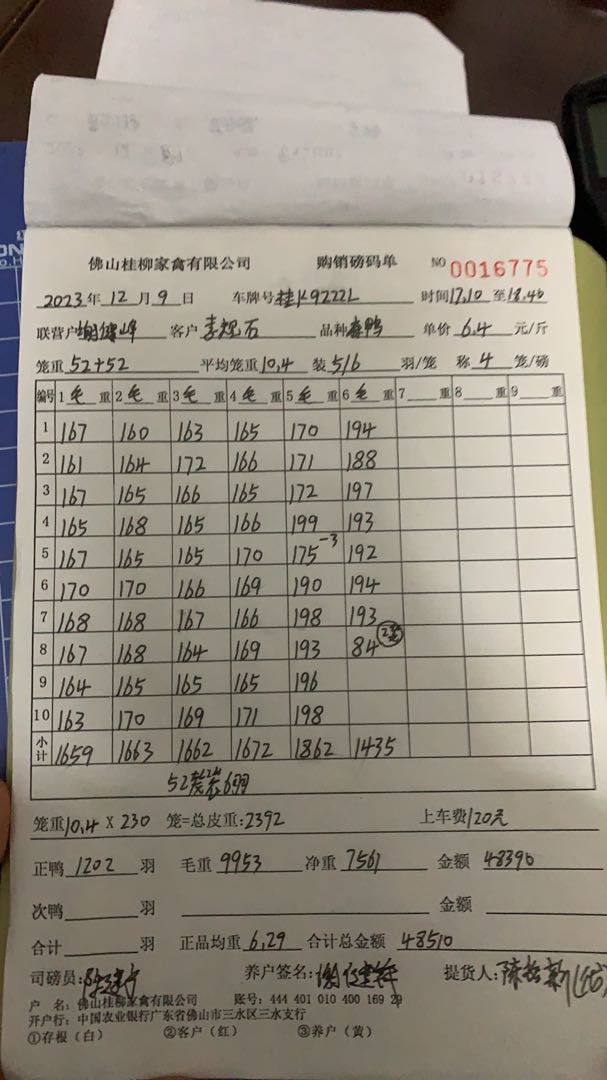 佛山桂柳家禽有限公司 购销磅码单 NO 0016775
2023年12月9日 车牌号桂K9222L 时间17.10至18.40
联营户 客户 品种 单价6.4元/斤
笼重52+52 平均笼重10.4 装5/6羽/笼 称4笼/磅
编号 1毛重 2毛重 3毛重 4毛重 5毛重 6毛重 7重 8重 9重
1 167 160 163 165 170 194
2 161 164 172 166 171 188
3 167 165 166 165 172 197
4 165 168 165 166 199 193
5 167 165 165 170 175-3 192
6 170 170 166 169 190 194
7 168 168 167 166 198 193
8 167 168 164 169 193 84
9 164 165 165 165 196
10 163 170 169 171 198
小计 1659 1663 1662 1672 1862 1435
52 装6羽
笼重10.4X230笼=总皮重:2392 上车费120元
正鸭1202羽 毛重9953 净重7561 金额48390
次鸭羽 金额
合计羽 正品均重6.29 合计总金额48510
司磅员: 养户签名: 提货人:
户 名:佛山桂柳家禽有限公司 账号:444 401 010 400 169 29
开户行:中国农业银行广东省佛山市三水区三水支行
①存根(白) ②客户(红) ③养户(黄)